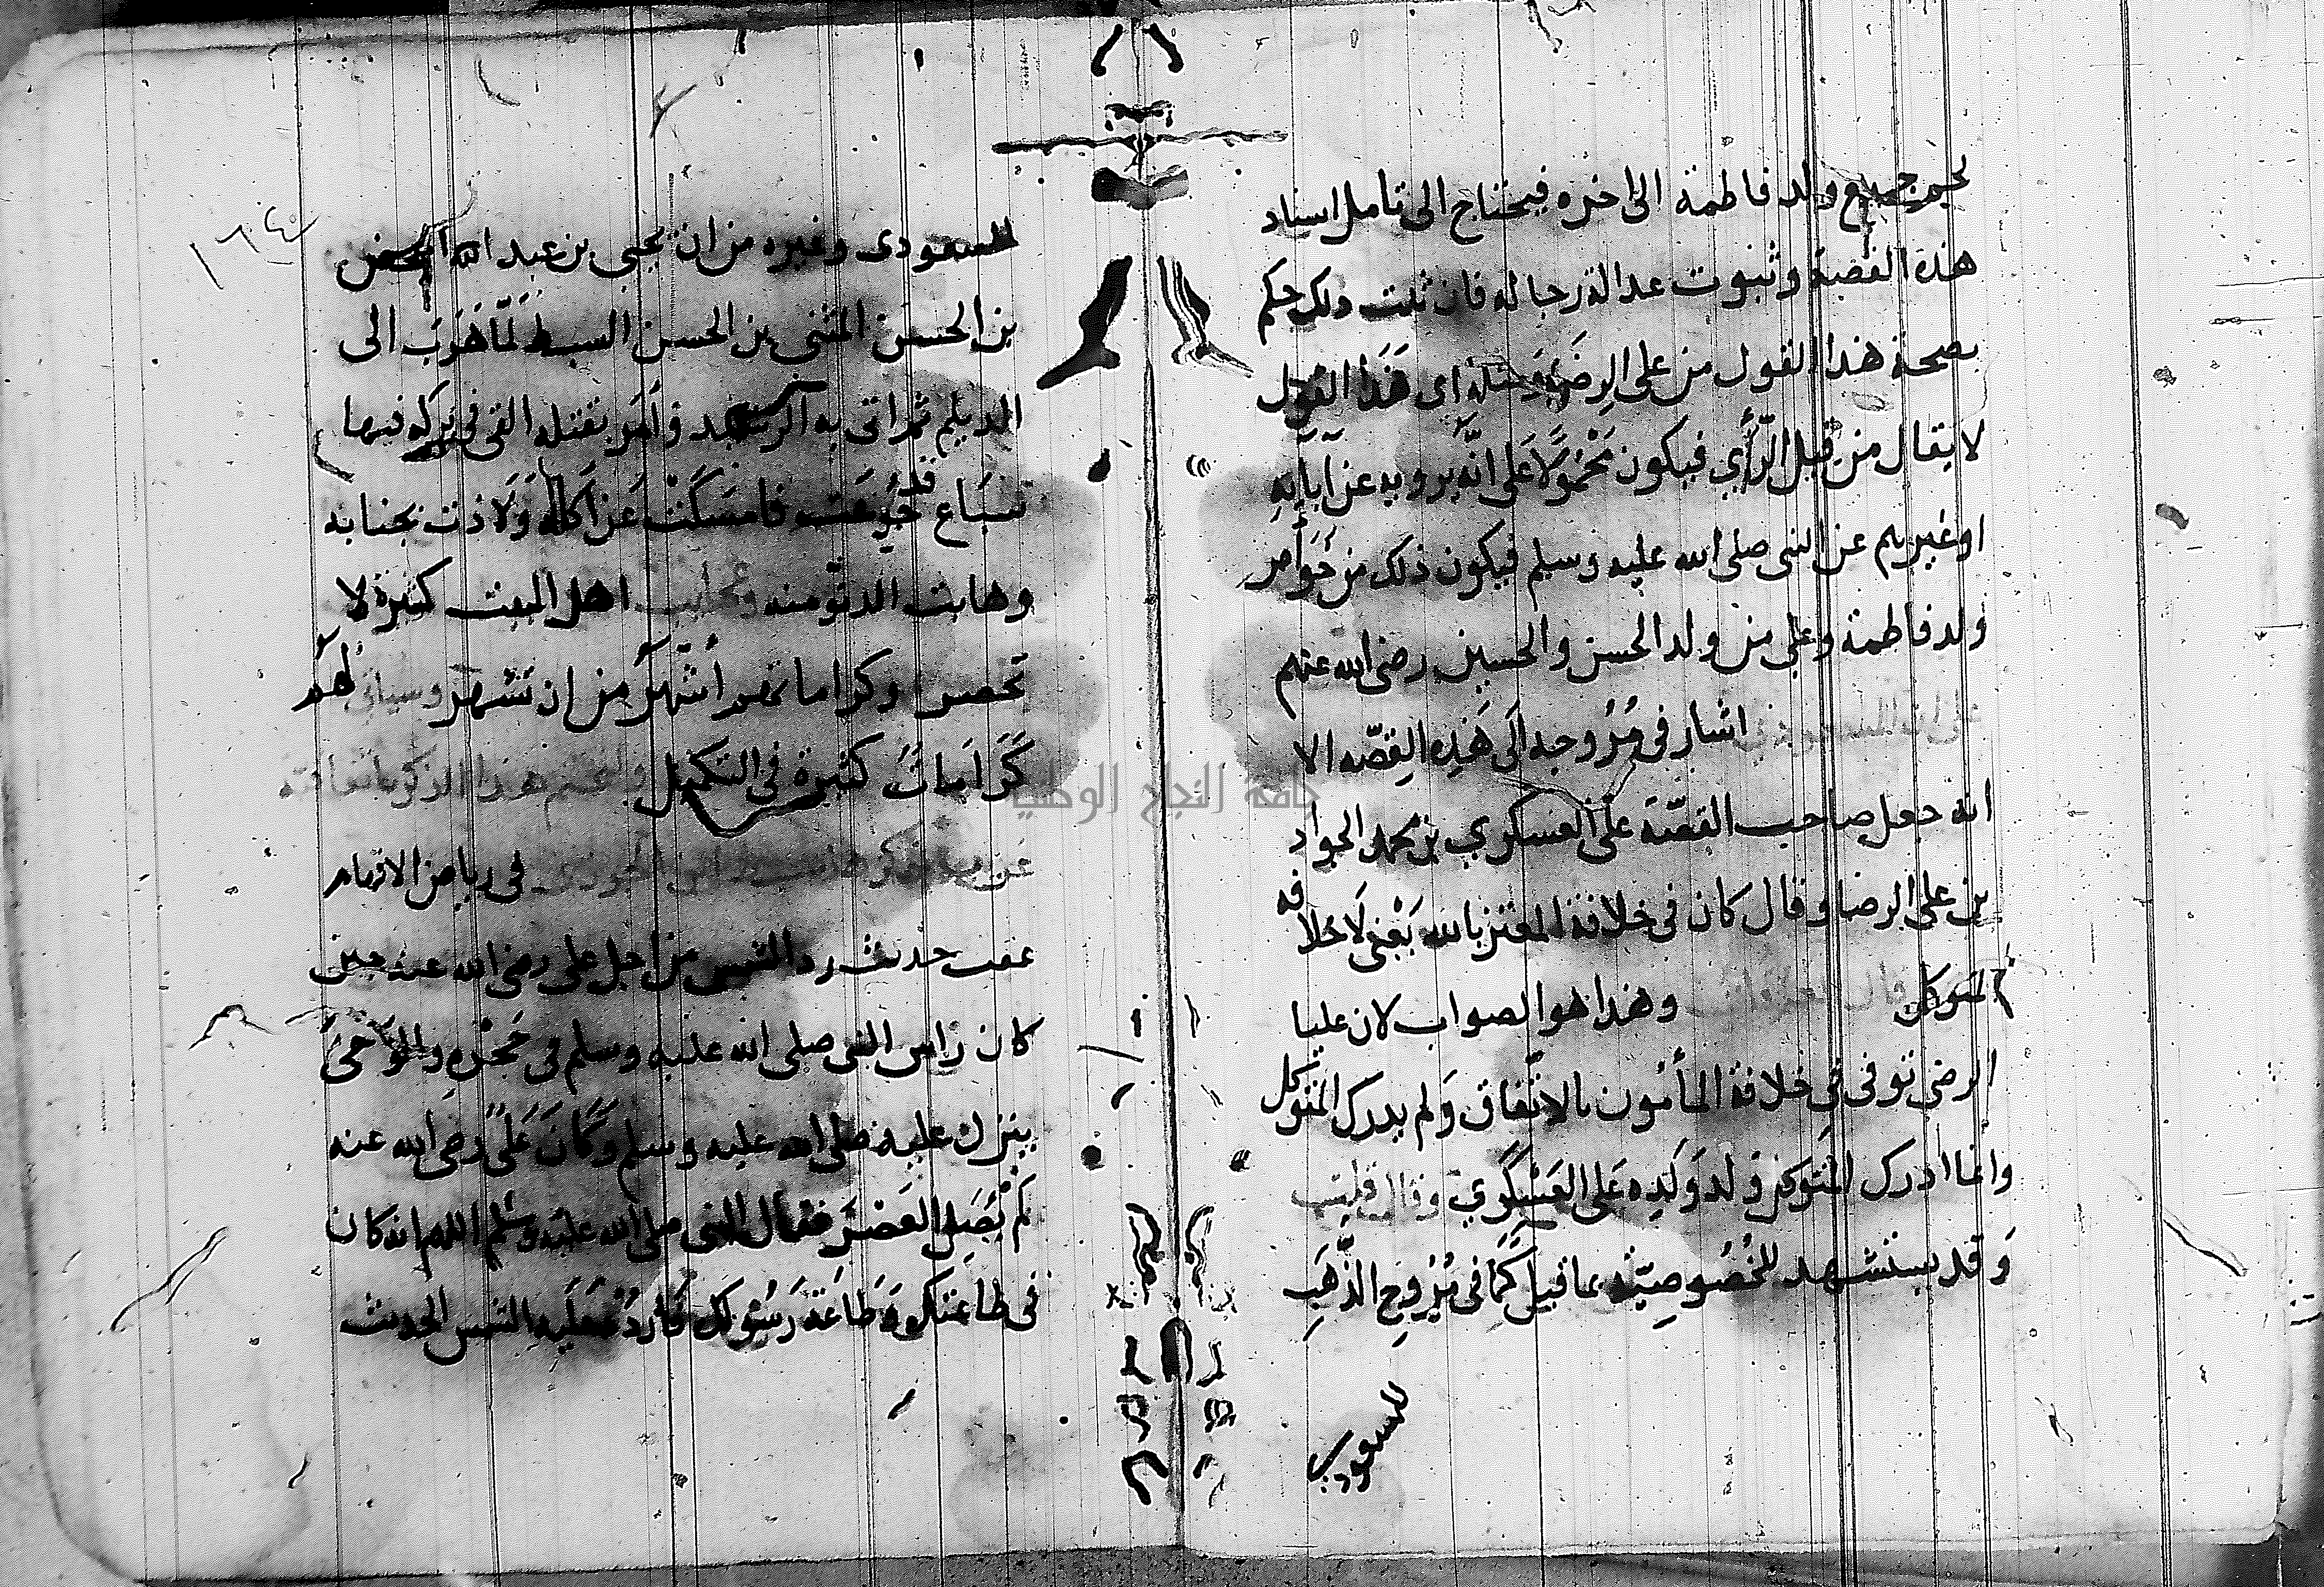 لحم جميع ولد فاطمة الى اخره فيحتاج الى تامل اسناد
هذه القضية وثبوت عدالة رجاله فان ثبت ذلك حكم
بصحة هذا القول من على الرضى ومثله اى هذا القول
لا يقال من قبل الرّأي فيكون محمولا على انّه يرويه عن آبآئه
او غيرهم عن النبى صلى الله عليه وسلم فيكون ذلك من خواص
ولد فاطمة وعلى من ولد الحسن والحسين رضى الله عنهم
على ان المسعودى اشار فى مُرُوجه الَى هَذِه القِصّه الا
انه جعل صاحب القصّة على العسكري بن محمد الجواد
بن على الرضا وقال كان فى خلافة المعتز بالله يَعْنى لَا خلافه
المتوكل وهذا هو الصواب لان عليا
الرضى توفى فى خلافة المأمون بالاتّفاق وَلم يدرك المتوكل
وانما ادرك المتوكل ولد وَلَدِه عَلى العَسْكَرِي وقال قلت
وَقد يستشهد للخُصُوصِيّة بما قيل كَمَا فى مُرُوج الذَّهَبِ
للمسعودي
١٦٤
للمسعودى وغيره من ان يحيى بن عبد الله المحض
بن الحسن المثنى بن الحسن السبط لَمَّا هَرَبَ الى
الديلم ثم اتى به الرشيد وَامَر بقتله القى فى بركه فيها
سباع قد جُوِّعَت فامسَكَتْ عَن اَكله وَلَاذت بجنابه
وهابت الدنوّ منه اهل البيت كثيرة لا
تحصر وكراماتهم اَشْهَرُ من ان تشهر وسياتى لهم
كَرَامَاتُ كثيرة فى التكميل ولنختم هذا الذكر
فى رياض الافهام
عقب حديث رد الشمس من اجل على رضى الله عنه حين
كان رَاس النبى صلى الله عليه وسلم فى حَجْرِه وَالوَحىُ
ينزل عليه صلى الله عليه وسلم وَكَانَ عَلىٌ رضى الله عنه
لَمْ يُصَلِّ العَصْرَ فقال النبى صلى الله عليه وسلم اللهم انه كان
فى طاعتك وَطَاعَة رَسُولك فَاردُدْ عَلَيه الشمس الحديث
جامعة النجاح الوطنية